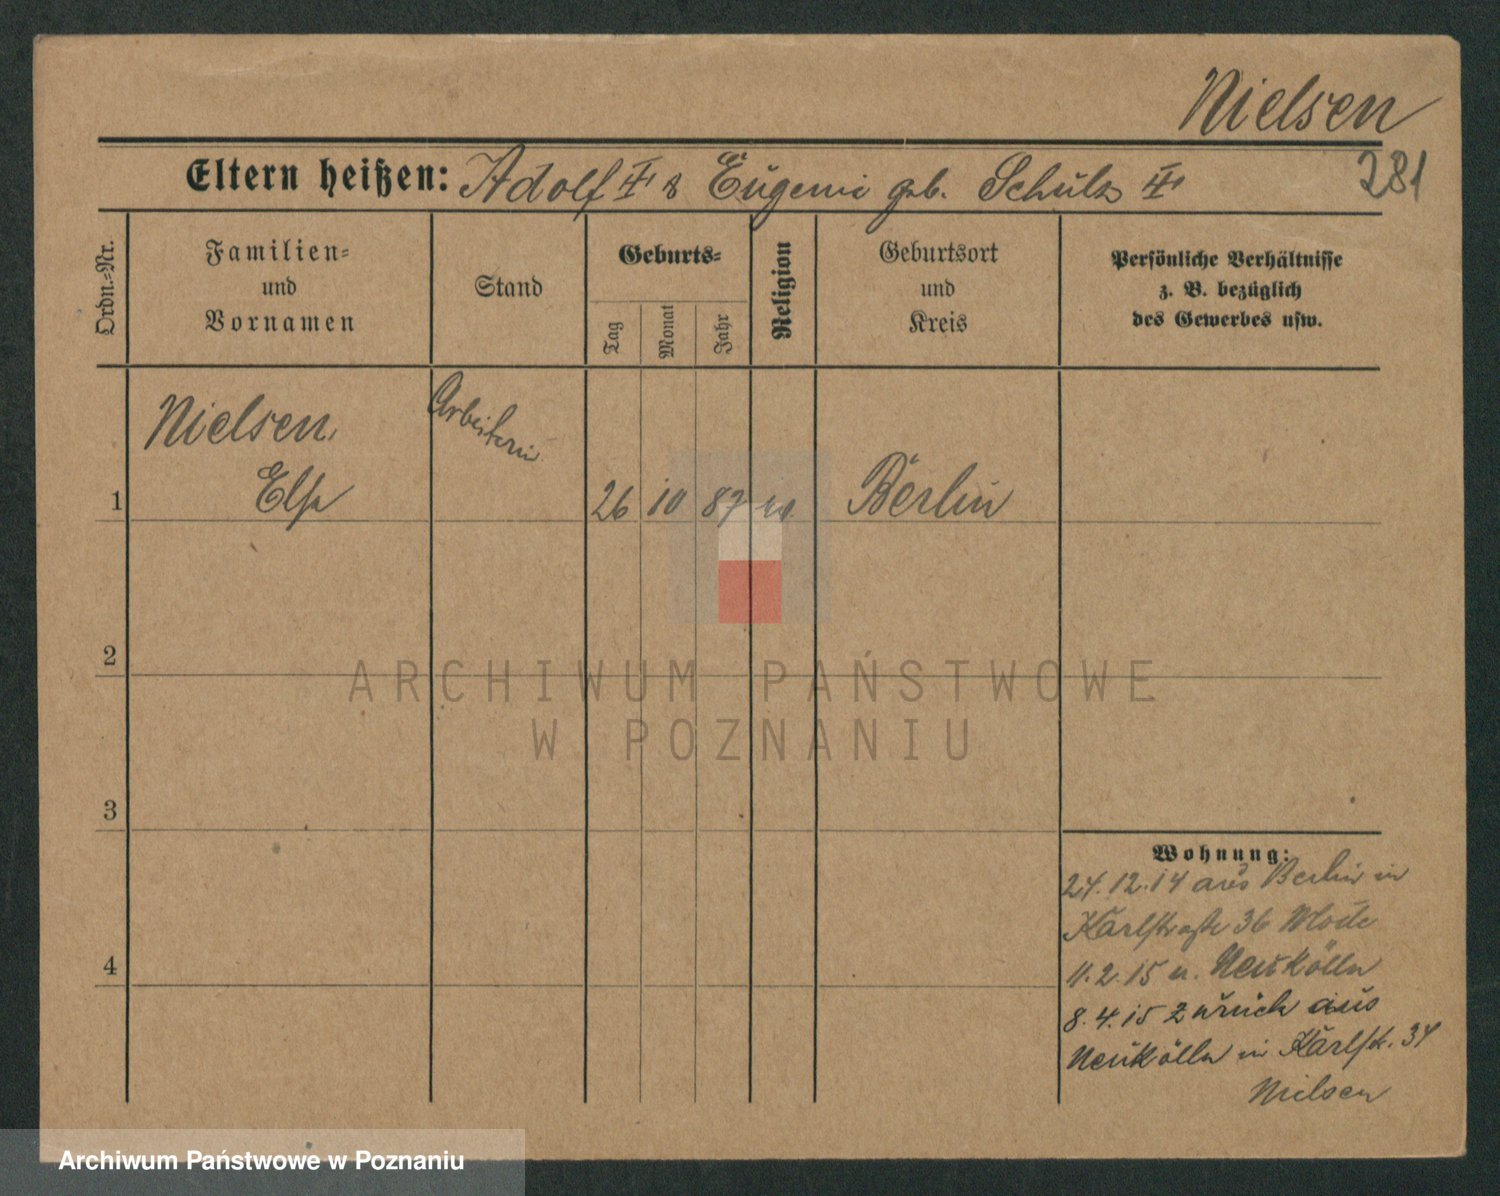 Nielsen
281
Eltern heißen: Adolf & Eugenie geb. Schulz
Ordn.-Nr.
Familien-
und
Vornamen
Stand
Geburts-
Tag
Monat
Jahr
Religion
Geburtsort
und
Kreis
Persönliche Verhältnisse
z. B. bezüglich
des Gewerbes usw.
1
Nielsen,
Else
Arbeiterin
26 10 87
Berlin
2
3
4
Wohnung:
24.12.14 aus Berlin in
Karlstraße 36
11.2.15 n. Neukölln
8.4.15 zurück aus
Neukölln in Karlstr. 34
Nielsen
ARCHIWUM PAŃSTWOWE
W POZNANIU
Archiwum Państwowe w Poznaniu